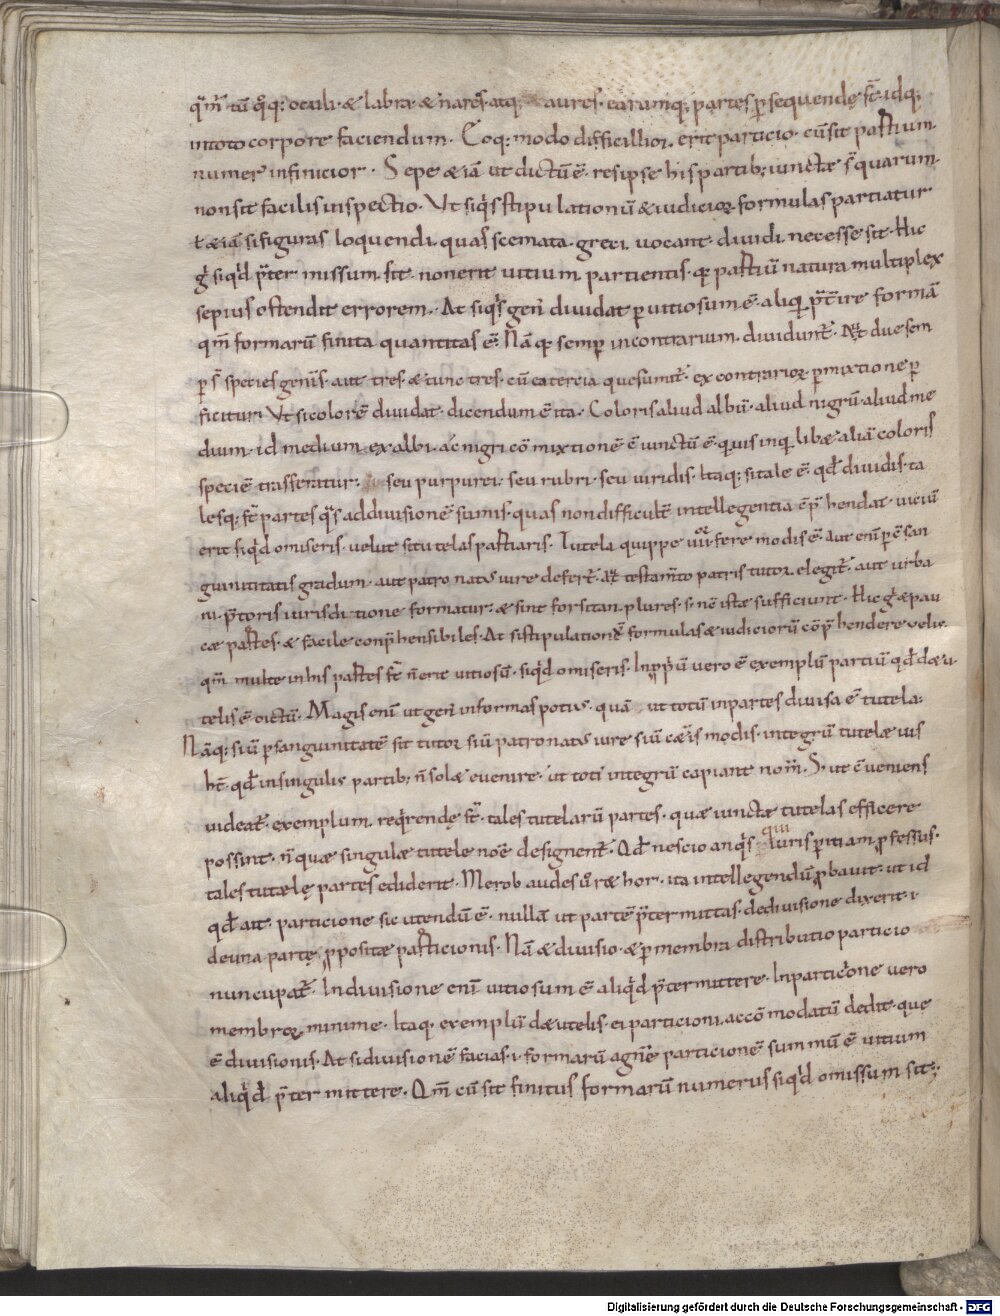 qm̄ tū q̊q; oculi · & labra · & nares · atq; aures · earumq; partes p̱sequendę s̄t · idq;
intoto corpore faciendum · Eoq; modo difficillior erit particio · cū sit partium
numer' infinicior · Sepe & iā ut dictū ē · resipse his partib; iunctæ s̄ quarum
nonsit facilis inspectio · Ut siq̇s stipulationū & iudicioꝝ formulas partiatur
ł &iā si figuras loquendi quas scemata greci uocant diuidi necesse sit · Hic
g̊ siq̇d p̄ter missum sit non erit uitium partientis · qꝛ partiū natura multiplex
sepius ostendit errorem · At siq̇s gen' diuidat ꝑuitiosum ē · aliquā p̄t̄ire formā
qm̄ formarū finita quantitas ē · Nā qꝛ semꝑ incontrarium diuidunt̄ · Aut due sem
ꝑ s̄ species gen̄is · aut tres · & tunc tres · cū ea tercia que sumit̄ · ex contrarioꝝ ꝑmixtione ꝑ
ficitur · Ut si colorē diuidat · dicendum ē ita · Coloris aliud albū · aliud nigrū · aliud me
dium · id medium ex albi · ac nigri cōmixtionē ē iunctū ē · quis inquā lib& aliā coloris
speciē trasseratur · seu purpurei · seu rubri · seu uiridis · Itaq; si tale ē · qđ diuidis · ta
lesq; s̄t partes q̇s addiuisionē sumis · quas non difficult̄ intellegentia cōp̄hendat · uiciū
erit siq̇d omiseris · uelut si tutelas partiaris · Tutela quippe iiii fere modis ē · aut enī ꝑ cōsan
guinitatis gradum · aut patronatus iure defert̄ · aut testam̄to patris tutor elegit̄ · aut urba
ni p̄toris iurisdictione formatur · & sint forsitan plures · s; nc̄ istæ sufficiunt · Hic g̊ & pau
cæ partes · & facile conp̄hensibiles · At si stipulationū formulas & iudiciorū cōp̄hendere uelis ·
qm̄ multe in his partes s̄t n̄ erit uitiosū · siq̇d omiseris · In pp̄ū uero ē exemplū partiū qđ dætu
telis ē dictū · Magis enī ut gen' informas potius quā ut totū inpartes diuisa ē tutela ·
Nāq; siū ꝑsanguinitatē sit tutor siū patronatus iure siū cæt̄is modis · integrū tutelæ ius
ht̄ · qđ in singulis partib; n̄ solæ euenire · ut toti integrū capiant nom̄ · S; ut cōueniens
uideat̄ exemplum req̇rendę s̄t · tales tutelarū partes · quæ iunctæ tutelas efficere
possint · n̄ quæ singulæ tutele nom̄ designent̄ · Qđ nescio an q̇s qui iuris peritiam ꝓfessus ·
tales tutælę partes ediderit · Merob audes u̇o ræhor · ita intellegendū ꝓbauit · ut id
qđ ait · particione sic utendū ē · nullā ut partē p̄termittas · dediuisione dixerit · i
deuna parte ꝓpositæ particionis · Nā & diuisio · & ꝑ membra distributio particio
nuncupat̄ · In diuisione enī uitiosum ē aliq̇d p̄termittere · In particione uero
membroꝝ minime · Itaq; exemplū dætutelis ei particioni accōmodatū dedit · que
ē diuisionis · At si diuisionē facias · i formarū agn̄e particionē summū ē uitium
aliq̇d p̄termittere · Qm̄ cū sit finitus formarū numerus siq̇d omissum sit ·
Digitalisierung gefördert durch die Deutsche Forschungsgemeinschaft - DFG